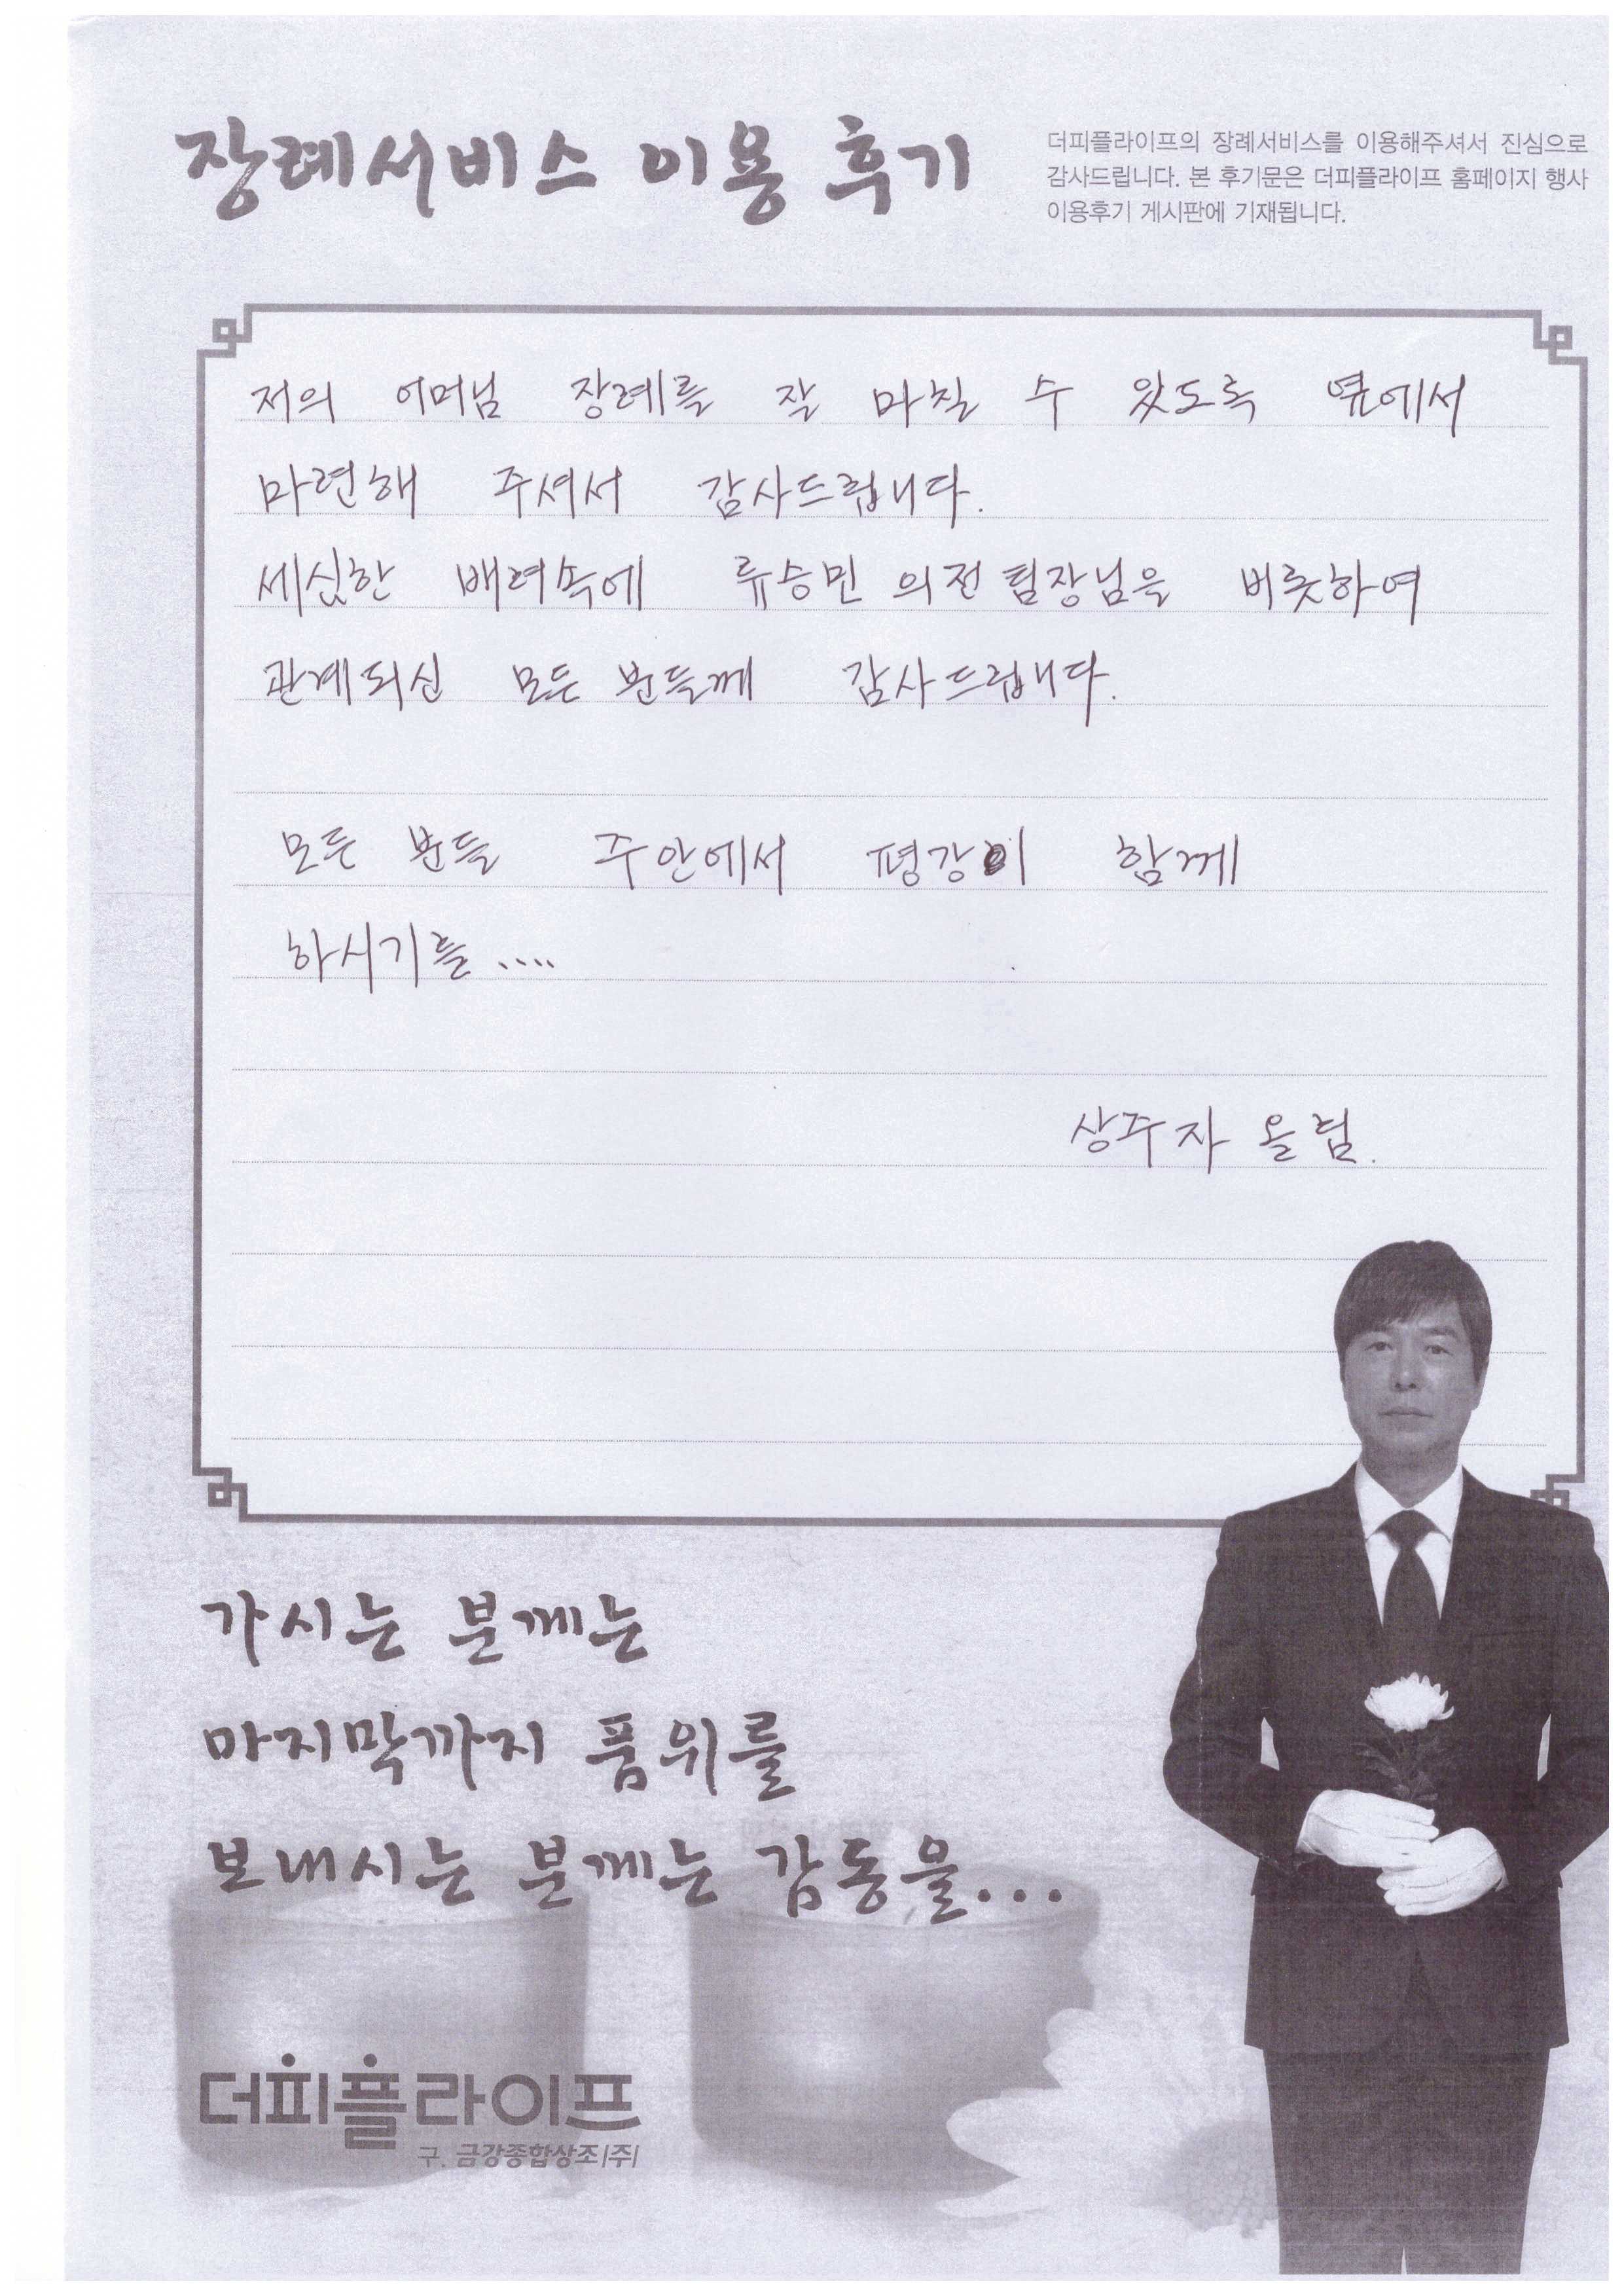 장례서비스 이용 후기
더피플라이프의 장례서비스를 이용해주셔서 진심으로
감사드립니다. 본 후기문은 더피플라이프 홈페이지 행사
이용후기 게시판에 기재됩니다.
저의 어머님 장례를 잘 마칠 수 있도록 옆에서
마련해 주셔서 감사드립니다.
세심한 배려속에 류승민 의전팀장님을 비롯하여
관계되신 모든 분들께 감사드립니다.
모든 분들 주안에서 평강이 함께
하시기를 ....
상주자 올림.
가시는 분께는
마지막까지 품위를
보내시는 분께는 감동을...
더피플라이프
구. 금강종합상조|주|